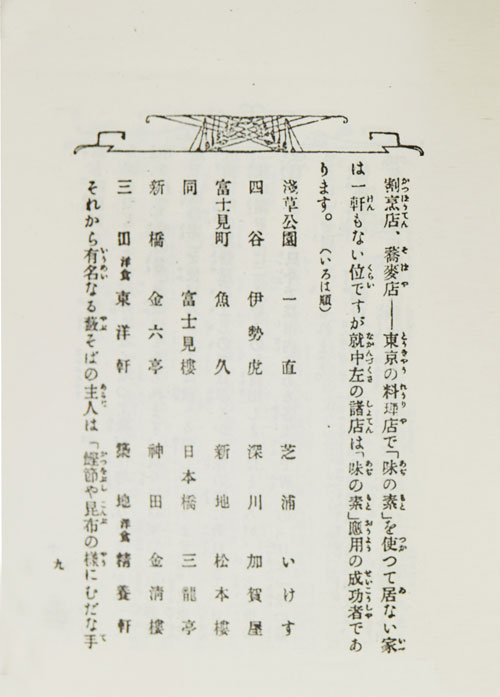 割烹店、蕎麥店――東京の料理店で「味の素」を使つて居ない家
は一軒もない位ですが就中左の諸店は「味の素」應用の成功者であ
ります。(いろは順)
淺草公園 一直 芝浦 いけす
四谷 伊勢虎 深川 加賀屋
富士見町 魚久 新地 松本樓
同 富士見樓 日本橋 三龍亭
新橋 金六亭 神田 金清樓
三田 洋食 東洋軒 築地 洋食 精養軒
それから有名なる藪そばの主人は「鰹節や昆布の樣にむだな手
九